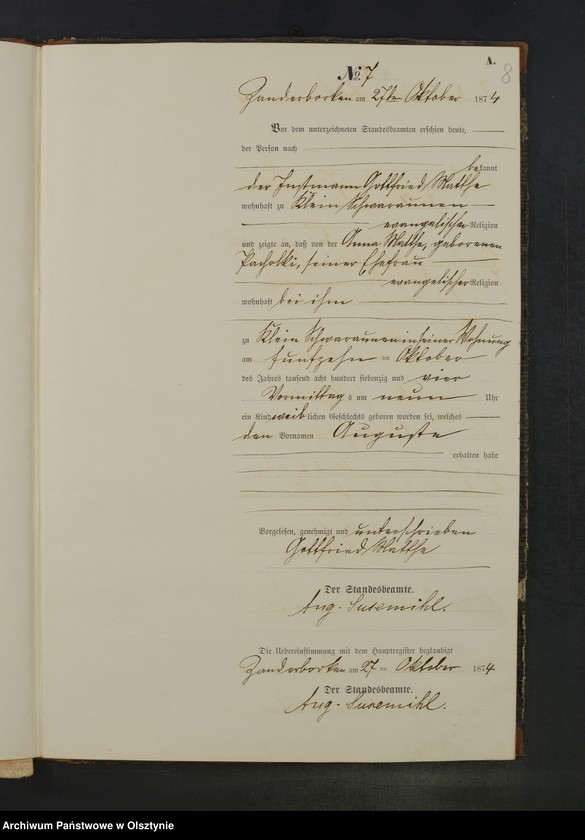 A.
8
No. 7
Zanderborken am 27ten Oktober 1874
Vor dem unterzeichneten Standesbeamten erschien heute,
der Person nach
bekannt
der Instmann Gottfried Matthe
wohnhaft zu Klein Schwaraunen
evangelischer Religion
und zeigte an, daß von der Anna Matthe, geborenen
Pacholki, seiner Ehefrau
evangelischer Religion
wohnhaft bei ihm
zu Klein Schwaraunen in seiner Wohnung
am fünfzehn ten Oktober
des Jahres tausend acht hundert siebenzig und vier
Vormittags um neun Uhr
ein Kind weiblichen Geschlechts geboren worden sei, welches
den Vornamen Auguste
erhalten habe
Vorgelesen, genehmigt und unterschrieben
Gottfried Matthe
Der Standesbeamte.
Aug. Susemihl.
Die Uebereinstimmung mit dem Hauptregister beglaubigt
Zanderborken am 27 ten Oktober 1874
Der Standesbeamte.
Aug. Susemihl.
Archiwum Państwowe w Olsztynie